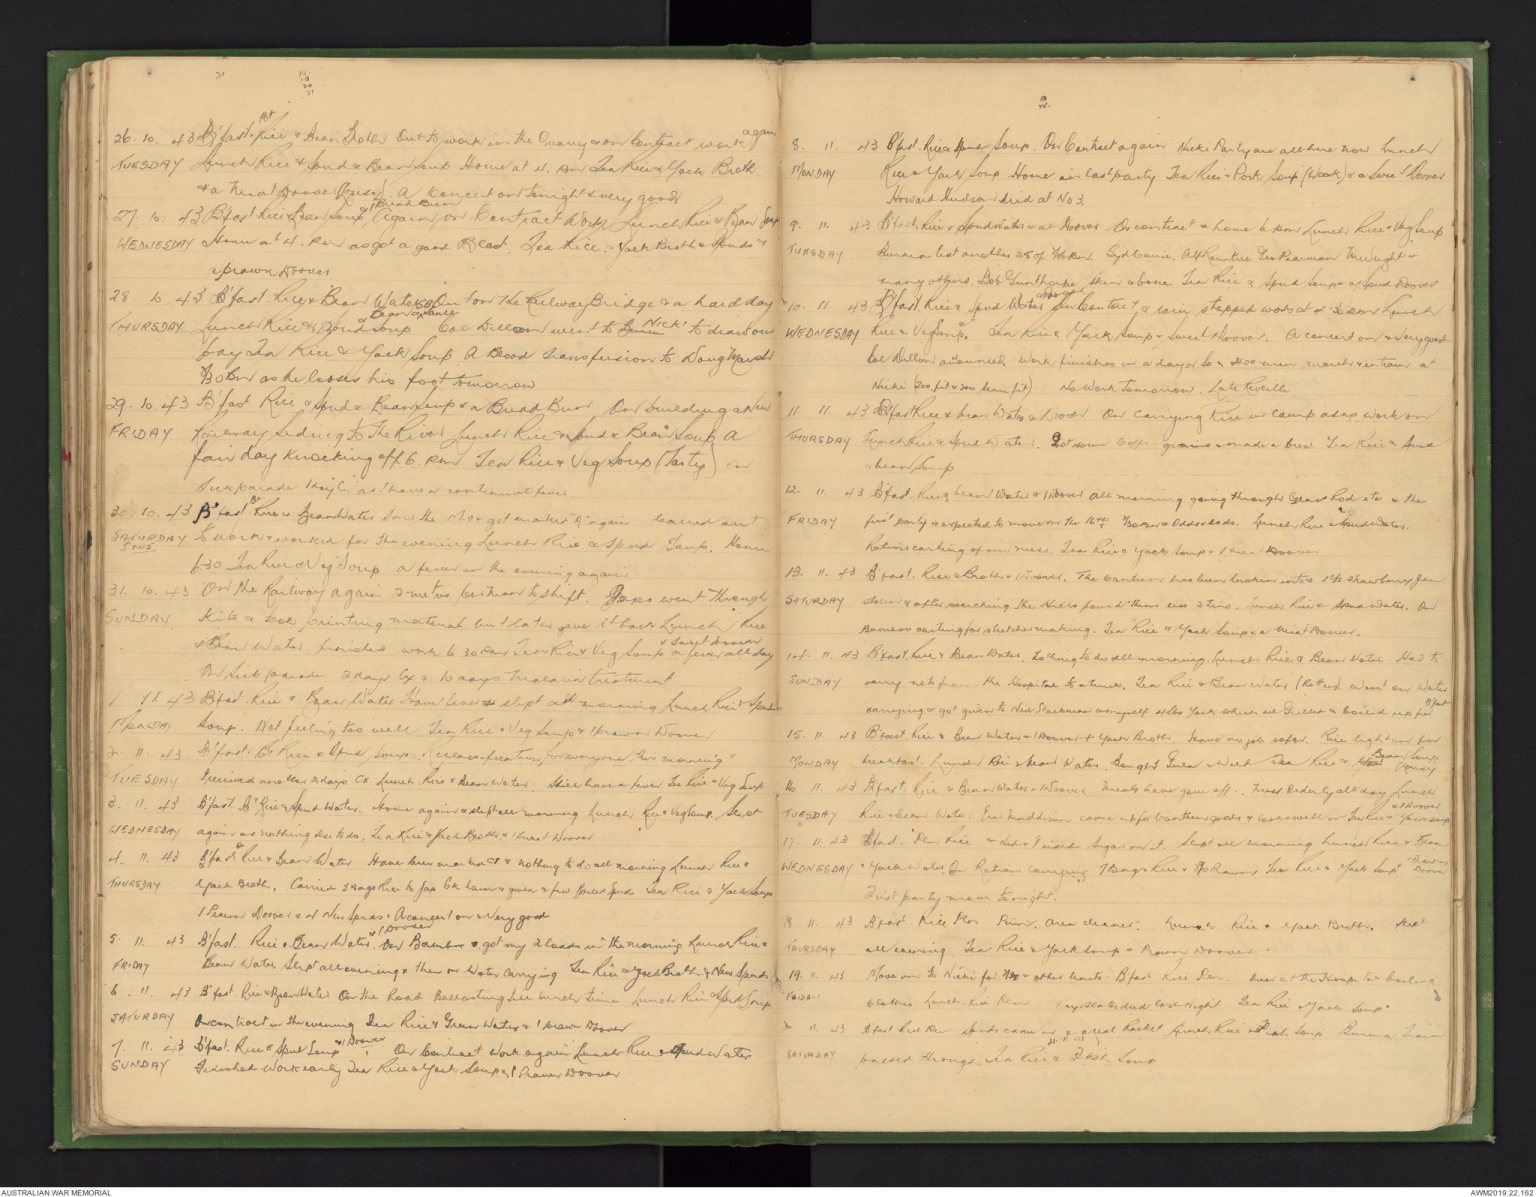 26. 10. 43 B'fast. Rice & Bean Broth Out to work in the Quarry & on Contract work again
TUESDAY Lunch Rice & Spud & Bean Soup Home at 4. P.M Tea Rice & York Broth
& a Meat Doover (Lousy) A Concert on tonight & very good
27. 10. 43 B'fast Rice & Bean Soup & 1 Bread Bun Again on Contract Work Lunch Rice & Bean Soup
WEDNESDAY Home at 4. P.M as got a good Tea Rice. York Broth & Spuds &
a prawn Doover
28. 10. 43 B'fast. Rice & Bean Water Out on the Railway Bridge & a hard day
THURSDAY Lunch Rice & Spud Soup Col Dillon went to Nicki to draw our
pay Tea Rice & York Soup A Blood transfusion to Doug Marsh
as he looses his foot tomorrow
29. 10. 43 B'fast Rice & Spud & Bean Soup & a Bread Bun On building a New
FRIDAY Railway Siding to the River Lunch Rice & Spud & Bean Soup A
fair day knocking off 6. P.M Tea Rice & Veg Soup (Tasty) on
Sick parade 1 day as I have a continual fever
30. 10. 43 B'fast. Rice & Bean Water Saw the M.O & got marked A again called out
SATURDAY to work & worked for the evening Lunch Rice & Spud Soup. Home
6-30 Tea Rice & Veg Soup a fever in the evening again
31. 10. 43 On the Railway again Japs went through
SUNDAY Kits & took printing material but later gave it back Lunch Rice
& Bean Water finished work 6 30 P.M Tea Rice & Veg Soup & sweet Doover a fever all day
On Sick parade 2 days & 10 days Malaria treatment
1. 11. 43 B'fast. Rice & Bean Water Have fever & slept all morning Lunch Rice & Spud
MONDAY Soup. Not feeling too well Tea Rice & Veg Soup & 1 Prawn Doover
2. 11. 43 B'fast. Rice & Spud Soup. Reclassification for everyone this morning &
TUESDAY I received another 2 days Lunch Rice & Bean Water. Still have a fever Tea Rice & Veg Soup
3. 11. 43 B'fast Rice & Spud Water. Home again & slept all morning Lunch Rice & Veg Soup. Slept
WEDNESDAY again as nothing else to do, Tea Rice & York Broth & 1 Sweet Doover
4. 11. 43 B'fast Rice & Bean Water Have been marked & nothing to do all morning Lunch Rice &
THURSDAY York Broth. Carried 3 Bags Rice to Jap & given a few boiled Spuds Tea Rice & York Soup
1 Prawn Doover & New Spuds. A concert on & Very good
5. 11. 43 B'fast. Rice & Bean Water & 1 Doover On Bamboo & got my 2 loads in the morning Lunch Rice &
FRIDAY Bean Water. Slept all evening & then on Water Carrying Tea Rice & York Broth & New Spuds
6. 11. 43 B'fast. Rice & Bean Water On the Road Ballasting till lunch time Lunch Rice & Spud Soup
SATURDAY On contract in the evening Tea Rice & Green Water & 1 Prawn Doover
7. 11. 43 B'fast. Rice & Spud Soup & 1 Doover On Contract work again Lunch Rice & Spud Water
SUNDAY Finished Work early Tea Rice & York Soup & 1 Prawn Doover
8. 11. 43 B'fast. Rice & Spud Soup. On Contract again Nicki Party are all here now Lunch
MONDAY Rice & York Soup Home in last party Tea Rice & Pork Soup (Weak) & a Sweet Doover
Howard Hudson died at No 3.
9. 11. 43 B'fast. Rice & Spud Water & a Doover. On contract & home 6 P.M Lunch Rice & Veg. Soup
TUESDAY Burma list another 28 of Syd Currie, Alf Rowntree Geo Pearman McVught &
many others. Bob Gunthorpe skin & bone Tea Rice & Spud Soup & a Spud Doover
10. 11. 43 B'fast Rice & Spud Water & Doover On Contract & rain stopped work at 3 P.M Lunch
WEDNESDAY Rice & Veg Soup. Tea Rice & York Soup & Sweet Doover. A concert on & very good
Col Dillon announced work finishes in a day or so & 2400 men march & entrain at
Nicki (200 fit & 200 semi fit) No Work Tomorrow. Late Reveille
11. 11. 43 B'fast Rice & bean Water & Doover On carrying Rice in camp as no work on
THURSDAY Lunch Rice & Spud Water. Got some Coffee grains & made a brew Tea Rice & Spud
& bean Soup
12. 11. 43 B'fast. Rice & bean Water & 1 Doover all morning going through Gear Rod etc & the
FRIDAY first party is expected to move on the 16th Lunch Rice & Spud Water.
Rations carting of our mess. Tea Rice & York Soup & 1 Meat Doover
13. 11. 43 B'fast. Rice & Broth & 1 Doover. The Canteen has been broken into & Strawberry Jam
SATURDAY stolen & after searching the Hills found them less 2 tins. Lunch Rice & Spud Water. On
Bamboo cutting for stretcher making. Tea Rice & York Soup & a Meat Doover.
14. 11. 43 B'fast. Rice & Bean Water. Nothing to do all morning. Lunch Rice & Bean Water Had to
SUNDAY carry rice from the Hospital to a truck. Tea Rice & Bean Water (Rotten) went on Water
carrying & got given to Ned Stockman & myself some York which we Grilled & boiled up for B'fast
15. 11. 43 B'fast. Rice & Bean Water & 1 Doover & York Broth Have no job so far. Rice light on for
MONDAY breakfast. Lunch Rice & bean Water. Bought Gula & Weed Tea Rice & Bean Soup (Lousy)
16. 11. 43 B'fast. Rice & Bean Water & Doover Meals have gone off. Mess Orderly all day Lunch
TUESDAY Rice & Bean Water. came up for Canteen goods & looks well on Tea Rice & York Soup & 1 Doover
17. 11. 43 B'fast. Plen Rice & Ned & I used sugar on it. Slept all morning Lunch Rice & Bean
WEDNESDAY & York Water On Ration carrying 7 Bags Rice & Prawns Tea Rice & York Soup & 1 Prawn Doover
First party move tonight.
18. 11. 43 B'fast Rice Plen Area cleaner. Lunch Rice & York Broth. Slept
THURSDAY all evening. Tea Rice & York Soup & Prawn Doover
19. 11. 43 Move on to Nicki for & other Units. B'fast Rice Plen. been at the Hospital boiling
FRIDAY clothes Lunch Rice Plen last night Tea Rice & York Soup.
20. 11. 43 B'fast Rice Plen Spuds came in & a real racket Lunch Rice & Fish Soup Burma train
SATURDAY passed through, Tea Rice & Fish Soup
AUSTRALIAN WAR MEMORIAL
AWM2019.22.162